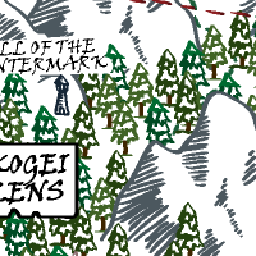 LL OF THE
NTERMARK
KOGEI
ZENS